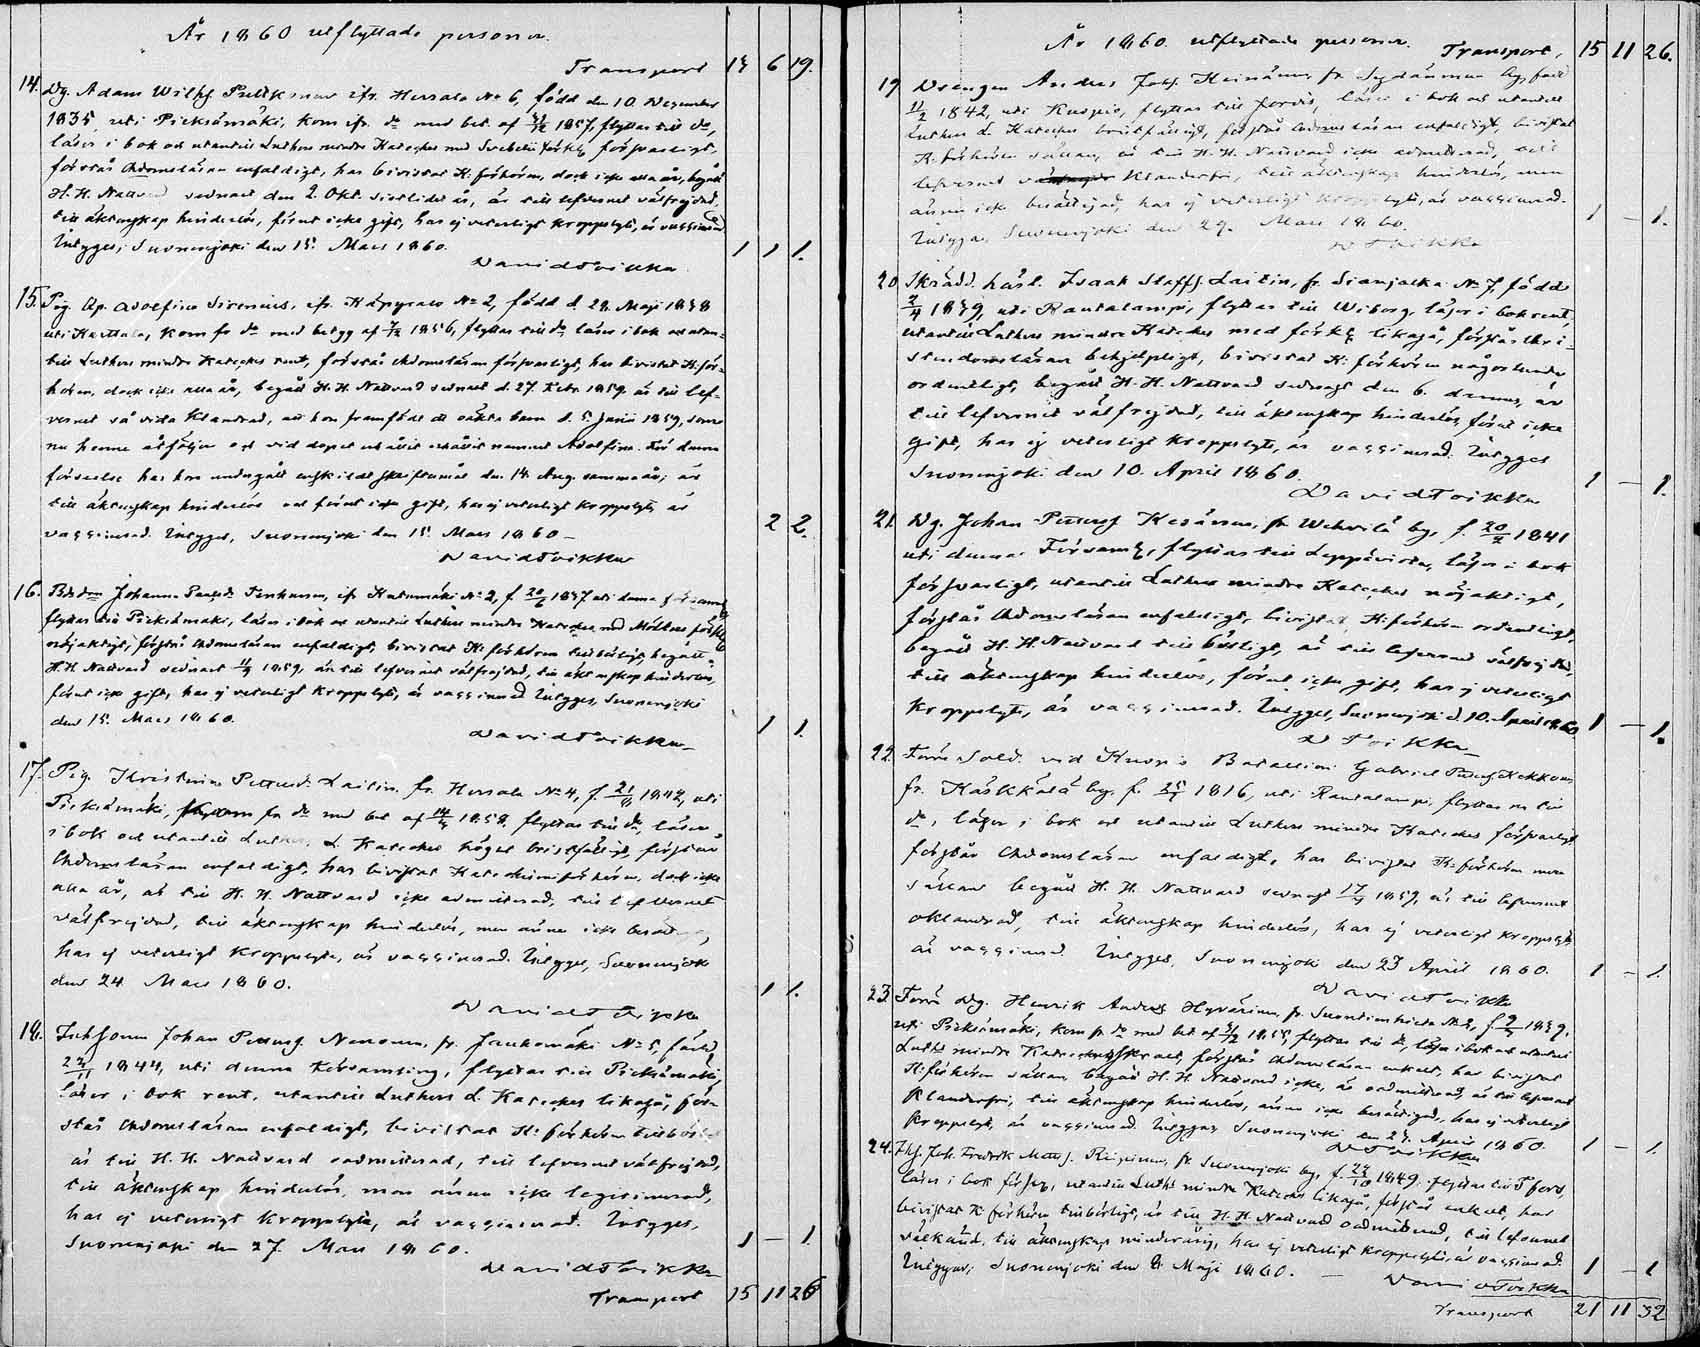 År 1860 utflyttade personer.
Transport 13 6 19.
14. Dg. Adam Wilhj. Pulkkinen ifr. Hersala No 6, född den 10 December
1835, uti Pieksämäki, kom ifr. do med bet. af 1857, flyttas till do,
läser i bok och utantill Luthers mindre Kateches med Svebelii förkl. försvarligt,
förstår Chdomsläran enfaldigt, har bivistat K. förhören, dock icke alla år, begått
H. H. Nattvard sednast den 2. Okt. sistlidet år, är till lefvernet välfrejdad,
till äktenskap hinderlös, förut icke gift, har ej veterligt kroppslyte, är vaccinerad
Intygger, Suonenjoki den 15. Mars 1860. 1 1 1.
David Toikka
15. Pig. Ap. Adolfina Sirenius, ifr. Käpysalo No 2, född d. 28. Maji 1838
uti Karttula, kom fr do med betyg af 1856, flyttas till do läser i bok och utan-
till Luthers mindre Kateches rent, förstår chdomsläran försvarligt, har bivistat K. för-
hören, dock icke alla år, begått H. H. Nattvard sednast d. 27. Febr. 1859. är till lef-
vernet så vida klandrad, att hon framfödt ett oäkta barn d. 5. Junii 1859, som
nu henne åtföljer och vid dopet erhållit namnet Adolfina. För denna
förseelse har hon undergått enskildt skriftermål den 14. Aug. samma år; är
till äktenskap hinderlös och förut icke gift, har ej veterligt kroppslyte, är
vaccinerad. Intygger, Suonenjoki den 15. Mars 1860. 2 2.
David Toikka
16. Johanna Tenhunen, ifr Kutumäki No 2, f. 1837 uti denna församl.
flyttas till Pieksämäki, läser i bok och utantill Luthers mindre Kateches med förkl.
nöjaktigt, förstår Chdomsläran enfaldigt, bivistat K. förhören tillbörligt, begått
H. H. Nattvard sednast 1859, är till lefvernet välfrejdad, till äktenskap hinderlös,
förut icke gift, har ej veterligt kroppslyte, är vaccinerad Intygger, Suonenjoki
den 15. Mars 1860. 1 1.
David Toikka
17. Pig. Kristina Pettersd. Laitin. fr. Hersala No 4, f. 1842, uti
Pieksämäki, kom fr do med bet af 1858. flyttas till do, läser
i bok och utantill Luthers d. Kateches högst bristfälligt, förstår
Chdomsläran enfaldigt, har bivistat Katechismiförhören, dock icke
alla år, är till H. H. Nattvard icke admitterad, till lefvernet
välfrejdad, till äktenskap hinderlös, men ännu icke
har ej veterligt kroppslyte, är vaccinerad. Intygger, Suonenjoki
den 24 Mars 1860. 1 1.
David Toikka
18. Johan Petters. Nenonen, fr. Jauhomäki No 5, född
1844, uti denna Församling, flyttas till Pieksämäki,
läser i bok rent, utantill Luthers d. Kateches likaså, för-
står Chdomsläran enfaldigt, bivistat K. förhören
är till H. H. Nattvard oadmitterad, till lefvernet välfrejdad,
till äktenskap hinderlös, men ännu icke legitimerad,
har ej veterligt kroppslyte, är vaccinerad. Intygger,
Suonenjoki den 27. Mars 1860. 1 – 1.
David Toikka
Transport 15 11 26
År 1860. utflyttade personer. Transport, 15 11 26.
19. Drengen Anders Joh:s. Heinänen fr. by, född
1842, uti Kuopio, flyttas till Jorois, läser i bok och utantill
Luthers d. Kateches bristfälligt, förstår Chdomsläran enfaldigt, bivistat
K. förhören sällan, är till H. H. Nattvard icke admitterad, till
lefvernet klanderfri, till äktenskap hinderlös, men
ännu icke berättigad, har ej veterligt kroppslyte, är vaccinerad.
Intygger, Suonenjoki den 29. Mars 1860. 1 – 1.
D Toikka
20. Skrädd. Isaak Staffs. Laitin, fr. Sianjalka No 7, född
1839, uti Rautalampi, flyttas till Wiborg, läser i bok rent,
utantill Luthers mindre Kateches med förkl. likaså, förstår chri-
stendomsläran behjelpligt, bivistat K. förhören någorlunda
ordentligt, begått H. H. Nattvard sednast den 6. dennes, är
till lefvernet välfrejdad, till äktenskap hinderlös, förut icke
gift, har ej veterligt kroppslyte, är vaccinerad. Intygger
Suonenjoki den 10. April 1860. 1 – 1.
David Toikka
21. Dg. Johan Petters. Kesänen, fr. Wehvilä by, f. 1841
uti denna Församl., flyttas till Leppävirta, läser i bok
försvarligt, utantill Luthers mindre Kateches nöjaktigt,
förstår Chdomsläran enfaldigt, bivistat K. förhören ordentligt,
begått H. H. Nattvard tillbörligt, är till lefvernet välfrejdad,
till äktenskap hinderlös, förut icke gift, har ej veterligt
kroppslyte, är vaccinerad. Intygger, Suonenjoki d. 10. April 1860 1 – 1.
D Toikka
22. Förra Sold. vid Kuopio Bataillon Gabriel Kekkonen
fr. Kärkkälä by, f. 1816, uti Rautalampi, flyttas nu till
do, läser i bok och utantill Luthers mindre Kateches försvarligt
förstår Chdomsläran enfaldigt, har bivistat K. förhören men
sällan begått H. H. Nattvard sednast 1859, är till lefvernet
oklandrad, till äktenskap hinderlös, har ej veterligt kroppslyte
är vaccinerad Intygger, Suonenjoki den 23 April 1860. 1 – 1.
David Toikka
23. Förra Dg. Henrik Anders Hyvärinen, fr. Suontientaka No 2, f. 1839.
uti Pieksämäki, kom fr do med bet af 1855, flyttas till do, läser i bok och utantill
Luth:s mindre Kateches, förstår Chdomsläran enkelt, har bivistat
K. förhören sällan, begått H. H. Nattvard icke, är oadmitterad, är till lefvernet
klanderfri, till äktenskap hinderlös, ännu icke berättigad, har ej veterligt
kroppslyte, är vaccinerad. Intygger, Suonenjoki den 27. April 1860 1 – 1.
D Toikka
24. Joh. Fredrik Matts. fr Suonenjoki by, f. 1849. flyttas till
läser i bok försv., utantill Luth:s mindre Kateches likaså, förstår enkelt, har
bivistat K. förhören tillbörligt, är till H. H. Nattvard oadmitterad, till lefvernet
välkänd, till äktenskap minderårig, har ej veterligt kroppslyte, är vaccinerad.
Intygger, Suonenjoki den 8. Maji 1860. 1 – 1
David Toikka
Transport 21 11 32